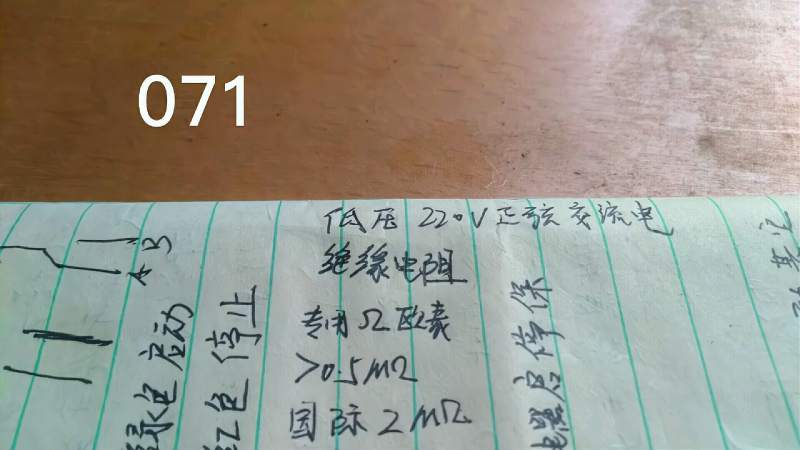 071
低压220V正弦交流电
绝缘电阻
专用Ω欧豪
>0.5MΩ
国际2MΩ
A B
绿色启动
红色停止
电器启停保